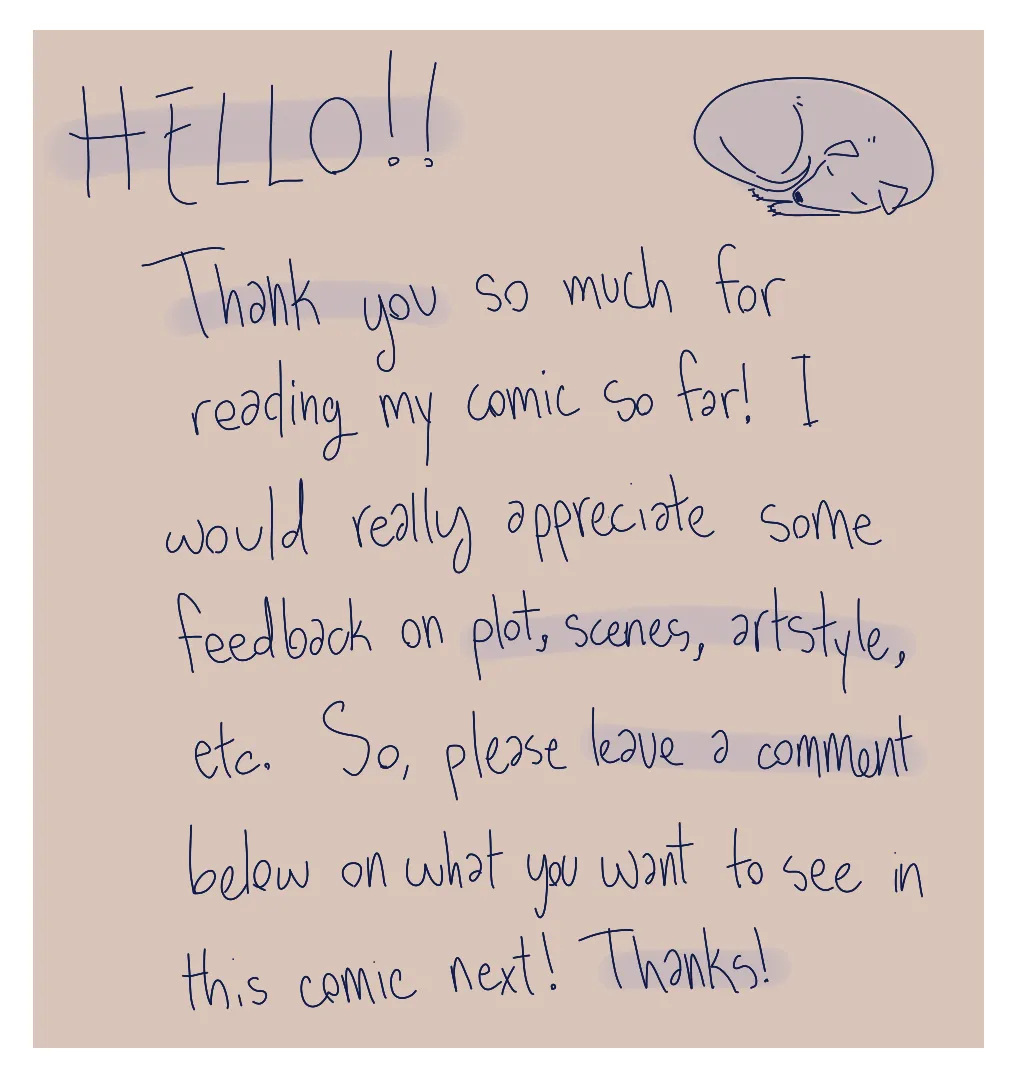 HELLO!!
Thank you so much for
reading my comic so far! I
would really appreciate some
feedback on plot, scenes, artstyle,
etc. So, please leave a comment
below on what you want to see in
this comic next! Thanks!